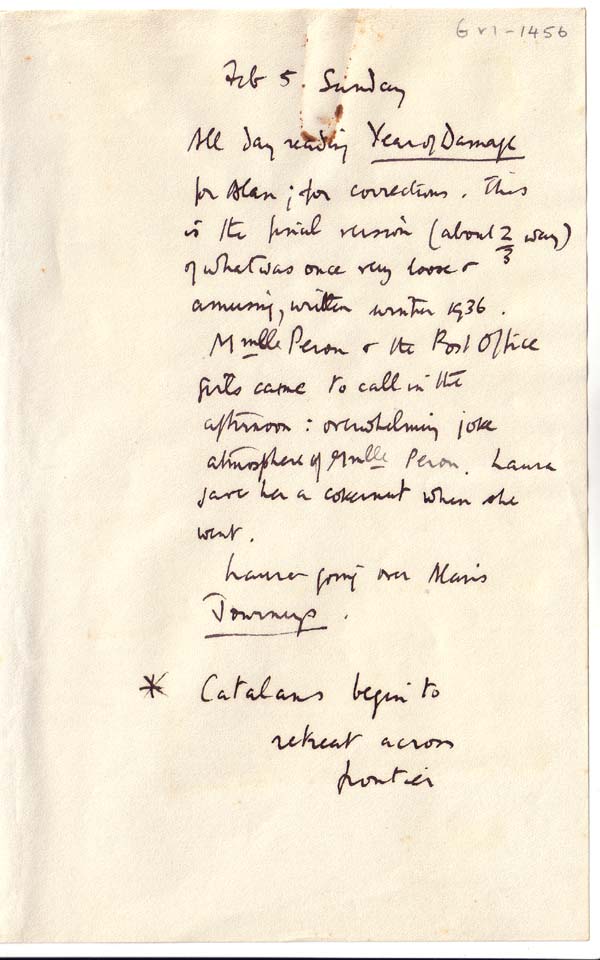 GV1-1456
Feb 5. Sunday
All day reading Year of Damage
for Alan ; for corrections. This
is the final version (about 2/3 way)
of what was once very loose &
amusing, written winter 1936.
Mmlle Peron & the Post Office
girls came to call in the
afternoon : overwhelming joke
atmosphere of Mmlle Peron. Laura
gave her a cokernut when she
went.
Laura going over Alan's
Journeys.
* Catalans begin to
retreat across
frontier